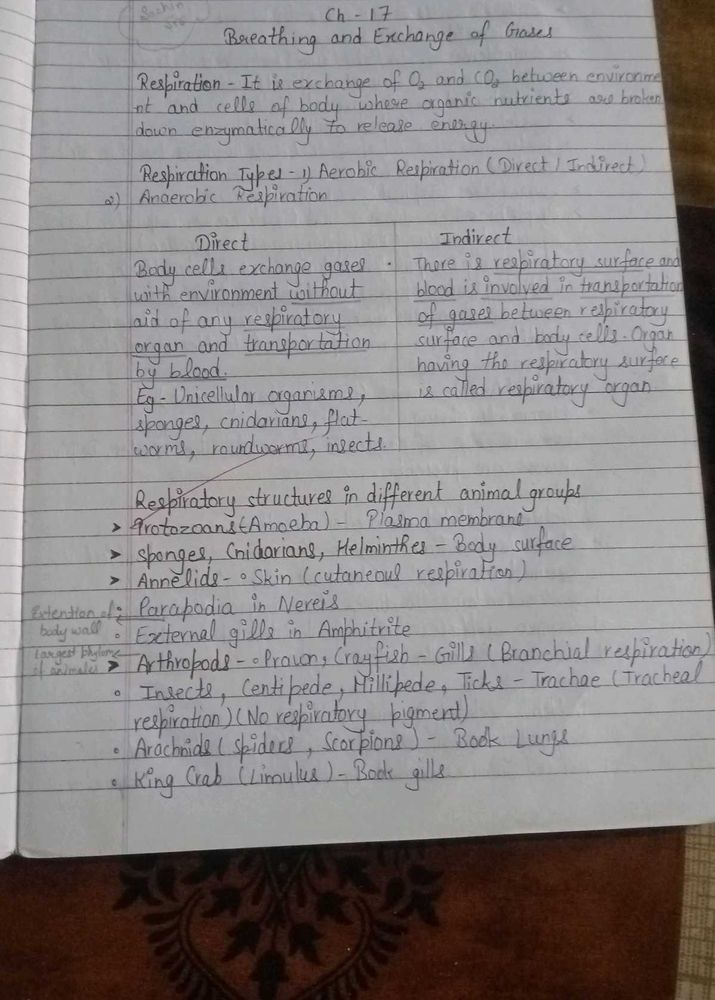 Ch - 17
Breathing and Exchange of Gases
Respiration - It is exchange of O2 and CO2 between environme
nt and cells of body where organic nutrients are broken
down enzymatically to release energy.
Respiration Types - 1) Aerobic Respiration (Direct / Indirect)
2) Anaerobic Respiration
Direct
Body cells exchange gases
with environment without
aid of any respiratory
organ and transportation
by blood.
Eg - Unicellular organisms,
sponges, cnidarians, flat-
worms, roundworms, insects.
Indirect
There is respiratory surface and
blood is involved in transportation
of gases between respiratory
surface and body cells. Organ
having the respiratory surface
is called respiratory organ
Respiratory structures in different animal groups
➤ Protozoans (Amoeba) - Plasma membrane
➤ Sponges, Cnidarians, Helminthes - Body surface
➤ Annelids - ∘ Skin (cutaneous respiration)
Extention of
body wall
∘ Parapodia in Nereis
∘ External gills in Amphitrite
Largest phylum
of animals
➤ Arthropods - ∘ Prawn, Crayfish - Gills (Branchial respiration)
∘ Insects, Centipede, Millipede, Ticks - Trachae (Tracheal
respiration) (No respiratory pigment)
∘ Arachnids (Spiders, Scorpions) - Book Lungs
∘ King Crab (Limulus) - Book gills